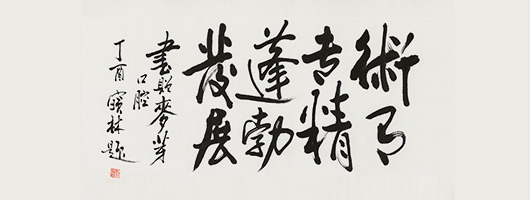 術有
专精
蓬勃
發展
書貽麥芽
口腔
丁酉寶林題